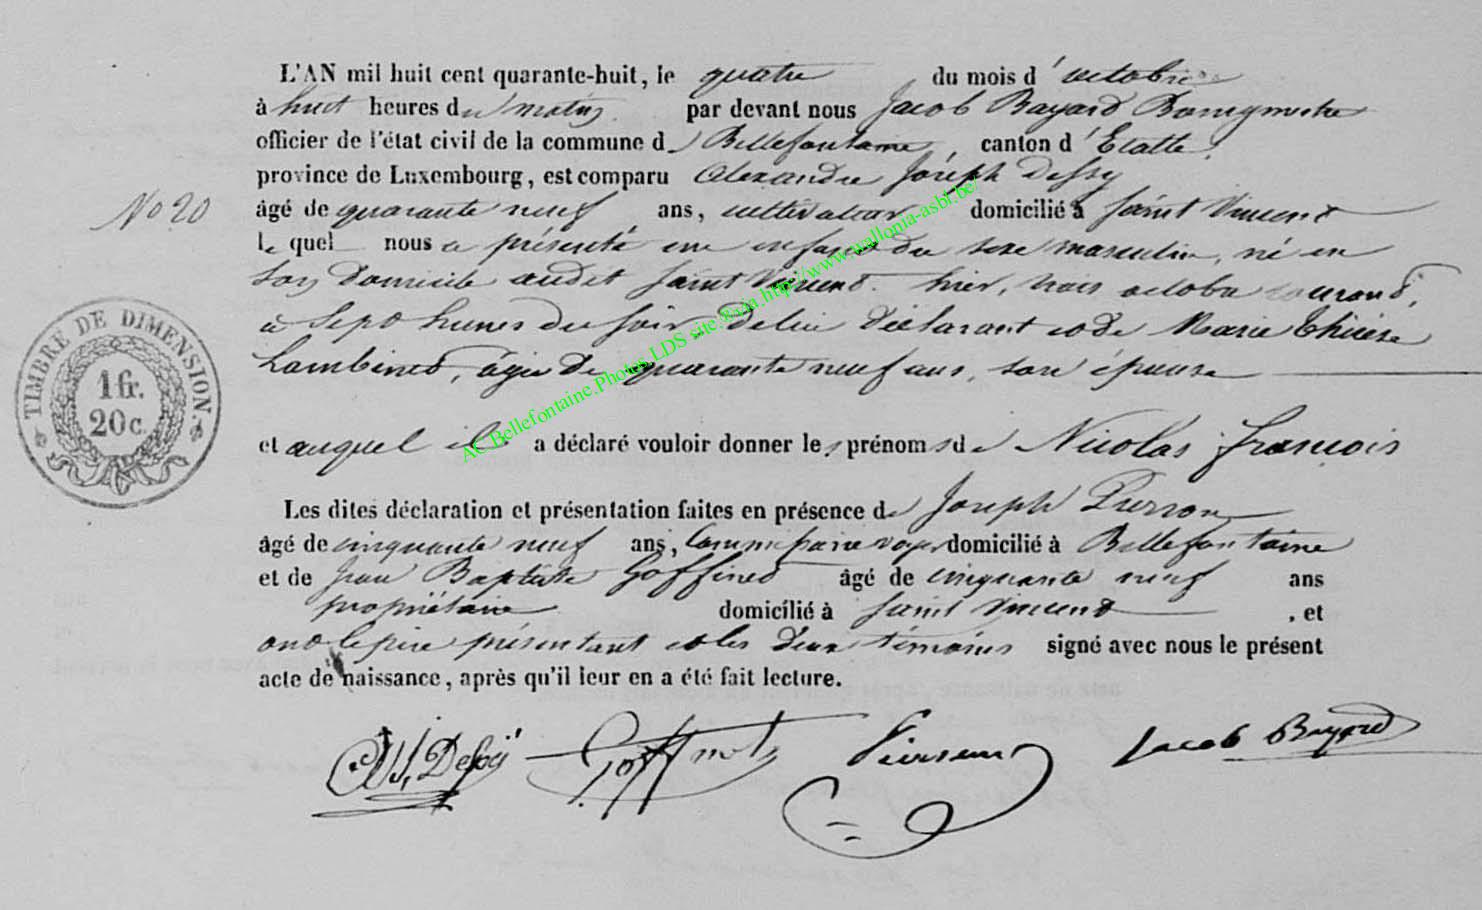 L'AN mil huit cent quarante-huit, le quatre du mois d'octobre
à huit heures du matin par devant nous Jacob Bayard Bourgmestre
officier de l'état civil de la commune de Bellefontaine, canton d'Etalle,
province de Luxembourg, est comparu Alexandre Joseph Dessy
No 20
âgé de quarante neuf ans, cultivateur domicilié à Saint Vincent
le quel nous a présenté un enfant du sexe masculin, né en
son domicile audit Saint Vincent. hier, trois octobre courant,
à sept heures du soir, de lui déclarant et de Marie Thérèse
Lambinet, âgée de quarante neuf ans, son épouse
TIMBRE DE DIMENSION
1 fr.
20 c.
et auquel il a déclaré vouloir donner les prénoms de Nicolas François
Les dites déclaration et présentation faites en présence de Joseph Pierson
âgé de cinquante neuf ans, Commissaire voyer domicilié à Bellefontaine
et de Jean Baptiste Goffinet âgé de cinquante neuf ans
propriétaire domicilié à Saint Vincent, et
ont le père présentant et les deux témoins signé avec nous le présent
acte de naissance, après qu'il leur en a été fait lecture.
AJ. Dessÿ Goffinet Pierson Jacob Bayard
AC Bellefontaine.Photos LDS site.®via.http://www.wallonia-asbl.be/